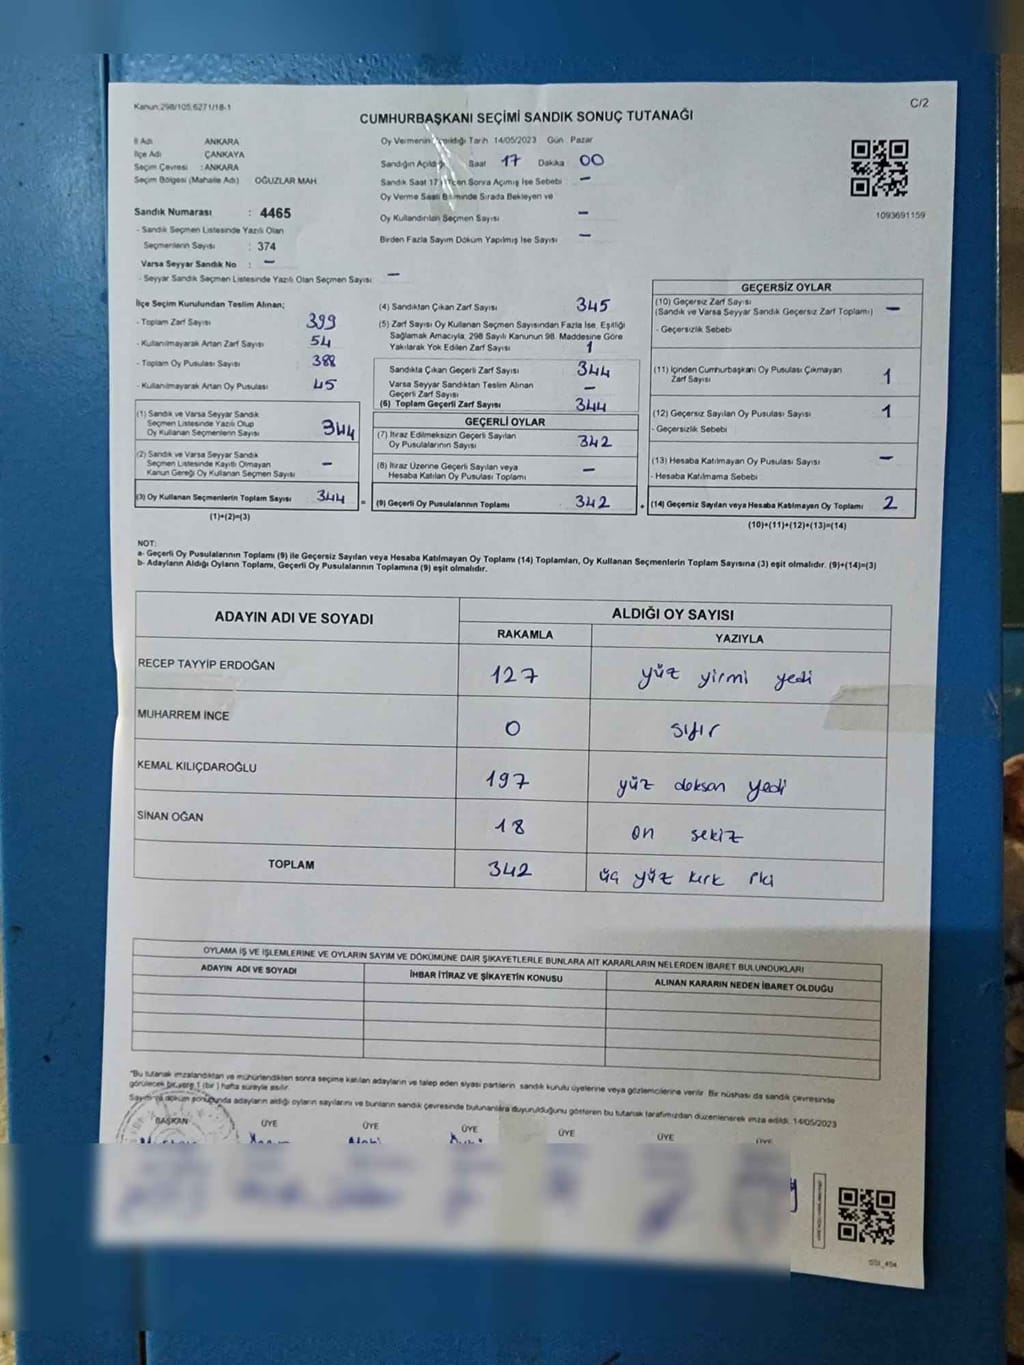 Kanun:298/105,6271/18-1
C/2
CUMHURBAŞKANI SEÇİMİ SANDIK SONUÇ TUTANAĞI
İl Adı ANKARA
İlçe Adı ÇANKAYA
Seçim Çevresi : ANKARA
Seçim Bölgesi (Mahalle Adı) OĞUZLAR MAH.
Sandık Numarası : 4465
- Sandık Seçmen Listesinde Yazılı Olan
Seçmenlerin Sayısı : 374
Varsa Seyyar Sandık No : –
- Seyyar Sandık Seçmen Listesinde Yazılı Olan Seçmen Sayısı : –
Oy Vermenin Tarih 14/05/2023 Gün Pazar
Sandığın Açıldığı Saat 17 Dakika 00
Sandık Saat 17 Sonra Açılmış İse Sebebi –
Oy Verme Saati Bitiminde Sırada Bekleyen ve
Oy Kullandırılan Seçmen Sayısı –
Birden Fazla Sayım Döküm Yapılmış İse Sayısı –
1093691159
İlçe Seçim Kurulundan Teslim Alınan;
- Toplam Zarf Sayısı 399
- Kullanılmayarak Artan Zarf Sayısı 54
- Toplam Oy Pusulası Sayısı 388
- Kullanılmayarak Artan Oy Pusulası 45
(1) Sandık ve Varsa Seyyar Sandık
Seçmen Listesinde Yazılı Olup
Oy Kullanan Seçmenlerin Sayısı 344
(2) Sandık ve Varsa Seyyar Sandık
Seçmen Listesinde Kayıtlı Olmayan
Kanun Gereği Oy Kullanan Seçmen Sayısı –
(3) Oy Kullanan Seçmenlerin Toplam Sayısı 344 =
(1)+(2)=(3)
(4) Sandıktan Çıkan Zarf Sayısı 345
(5) Zarf Sayısı Oy Kullanan Seçmen Sayısından Fazla İse, Eşitliği
Sağlamak Amacıyla, 298 Sayılı Kanunun 98. Maddesine Göre
Yakılarak Yok Edilen Zarf Sayısı 1
Sandıkta Çıkan Geçerli Zarf Sayısı 344
Varsa Seyyar Sandıktan Teslim Alınan
Geçerli Zarf Sayısı –
(6) Toplam Geçerli Zarf Sayısı 344
GEÇERLİ OYLAR
(7) İtiraz Edilmeksizin Geçerli Sayılan
Oy Pusulalarının Sayısı 342
(8) İtiraz Üzerine Geçerli Sayılan veya
Hesaba Katılan Oy Pusulaları Toplamı –
(9) Geçerli Oy Pusulalarının Toplamı 342 +
GEÇERSİZ OYLAR
(10) Geçersiz Zarf Sayısı
(Sandık ve Varsa Seyyar Sandık Geçersiz Zarf Toplamı) –
- Geçersizlik Sebebi
(11) İçinden Cumhurbaşkanı Oy Pusulası Çıkmayan
Zarf Sayısı 1
(12) Geçersiz Sayılan Oy Pusulası Sayısı 1
- Geçersizlik Sebebi
(13) Hesaba Katılmayan Oy Pusulası Sayısı –
- Hesaba Katılmama Sebebi
(14) Geçersiz Sayılan veya Hesaba Katılmayan Oy Toplamı 2
(10)+(11)+(12)+(13)=(14)
NOT:
a- Geçerli Oy Pusulalarının Toplamı (9) ile Geçersiz Sayılan veya Hesaba Katılmayan Oy Toplamı (14) Toplamları, Oy Kullanan Seçmenlerin Toplam Sayısına (3) eşit olmalıdır. (9)+(14)=(3)
b- Adayların Aldığı Oyların Toplamı, Geçerli Oy Pusulalarının Toplamına (9) eşit olmalıdır.
ADAYIN ADI VE SOYADI
ALDIĞI OY SAYISI
RAKAMLA YAZIYLA
RECEP TAYYİP ERDOĞAN 127 yüz yirmi yedi
MUHARREM İNCE 0 sıfır
KEMAL KILIÇDAROĞLU 197 yüz doksan yedi
SİNAN OĞAN 18 on sekiz
TOPLAM 342 üç yüz kırk iki
OYLAMA İŞ VE İŞLEMLERİNE VE OYLARIN SAYIM VE DÖKÜMÜNE DAİR ŞİKAYETLERLE BUNLARA AİT KARARLARIN NELERDEN İBARET BULUNDUKLARI
ADAYIN ADI VE SOYADI İHBAR İTİRAZ VE ŞİKAYETİN KONUSU ALINAN KARARIN NEDEN İBARET OLDUĞU
"Bu tutanak imzalandıktan ve mühürlendikten sonra seçime katılan adayların ve talep eden siyasi partilerin sandık kurulu üyelerine veya gözlemcilerine verilir. Bir nüshası da sandık çevresinde
görülecek bir yere 1 (bir) hafta süreyle asılır.
Sayım ve döküm sonucunda adayların aldığı oyların sayılarını ve bunların sandık çevresinde bulunanlara duyurulduğunu gösteren bu tutanak tarafımızdan düzenlenerek imza edildi. 14/05/2023
BAŞKAN ÜYE ÜYE ÜYE ÜYE ÜYE ÜYE